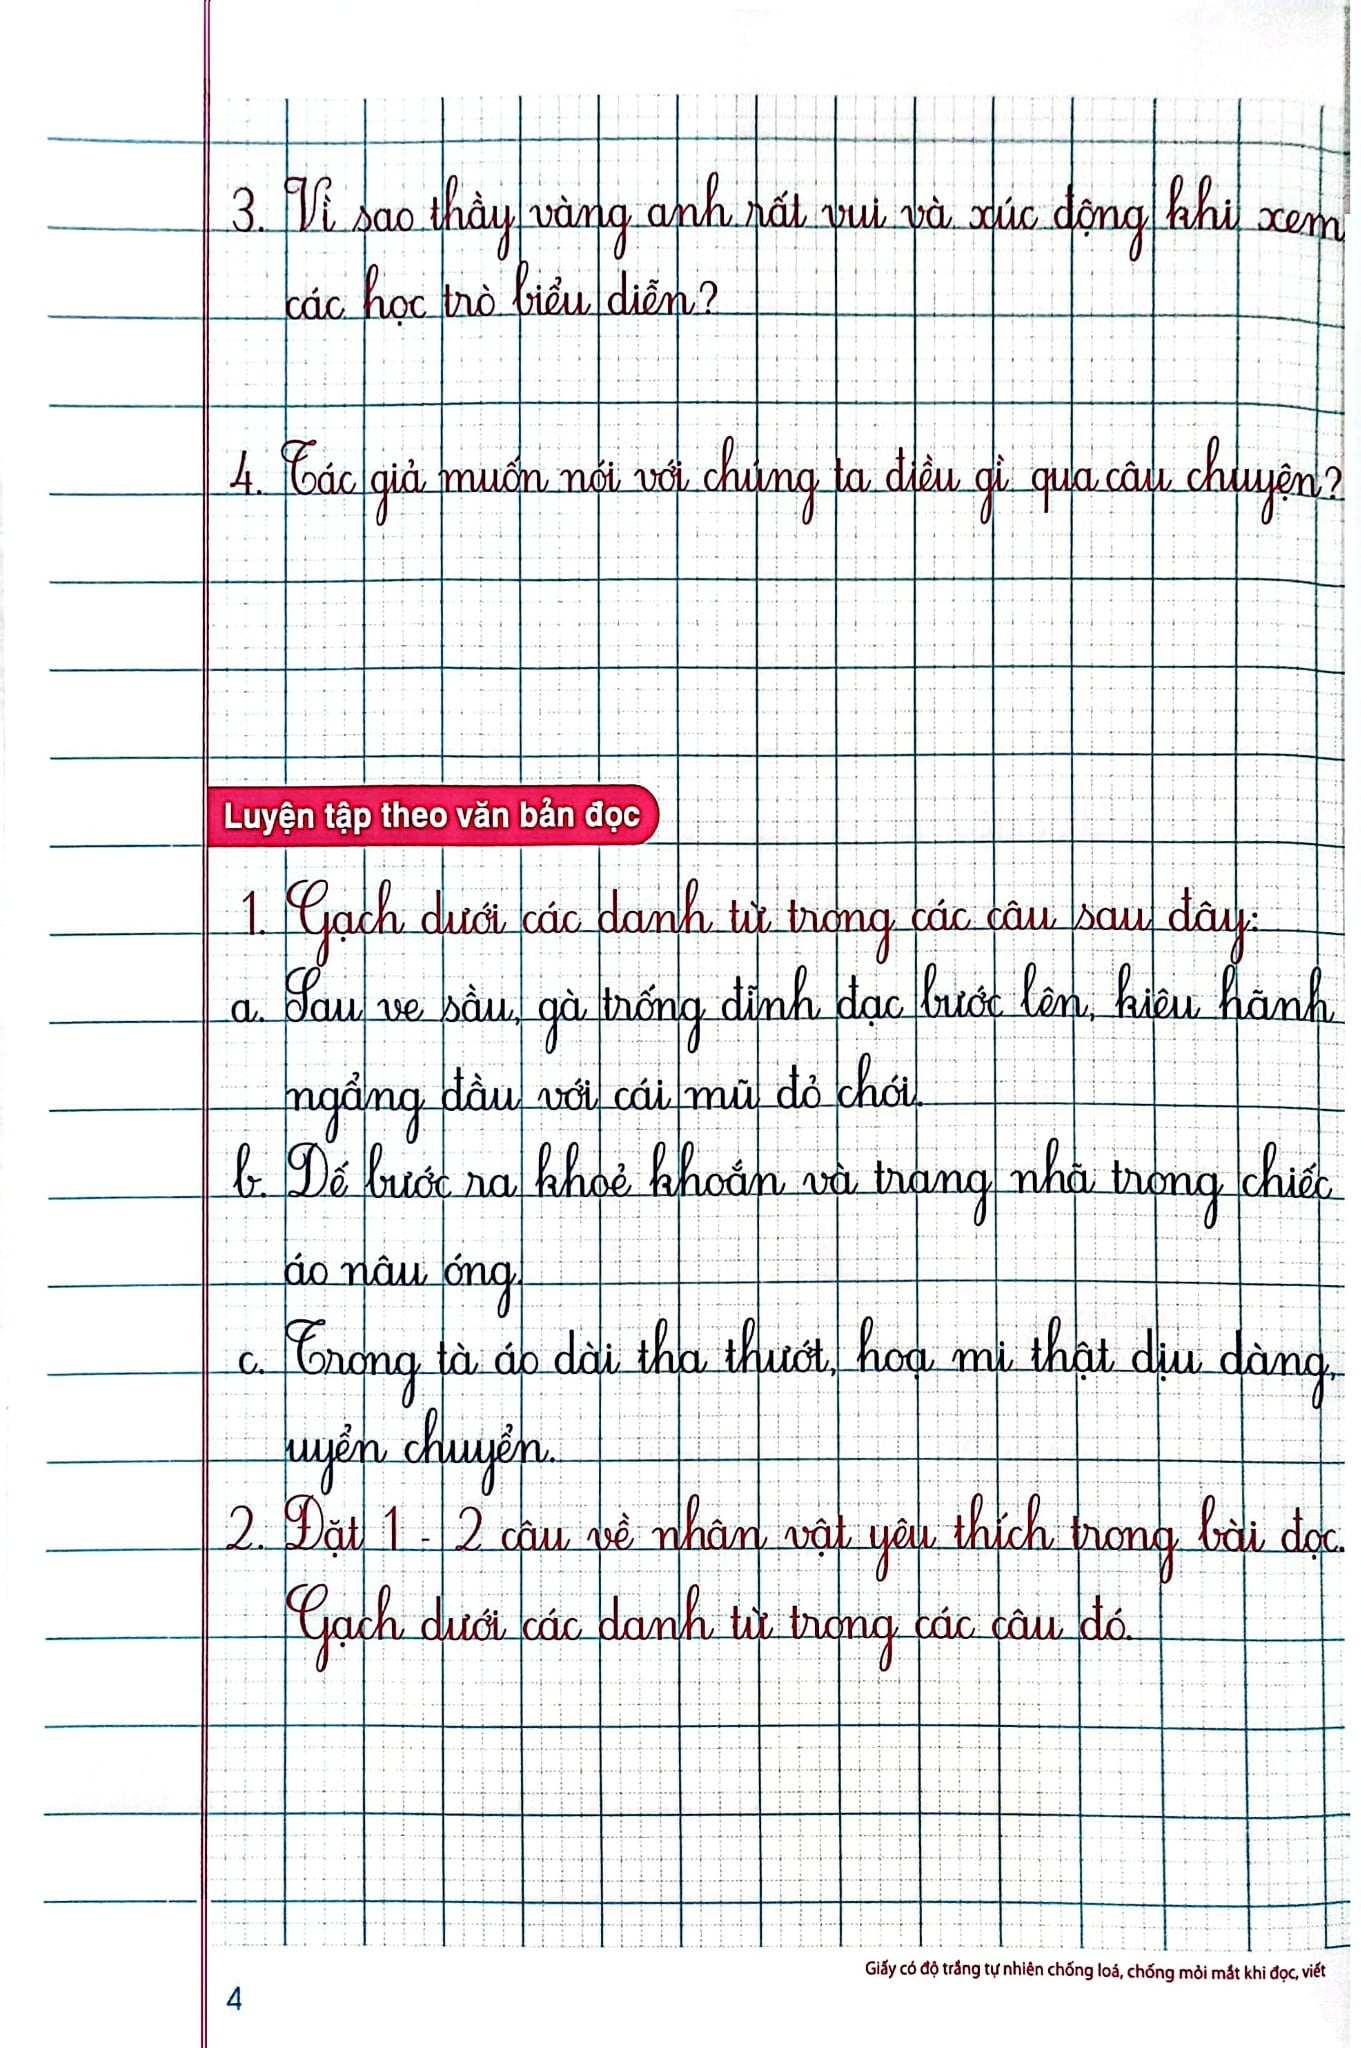 3. Vì sao thầy vàng anh rất vui và xúc động khi xem
các học trò biểu diễn?
4. Tác giả muốn nói với chúng ta điều gì qua câu chuyện?
Luyện tập theo văn bản đọc
1. Gạch dưới các danh từ trong các câu sau đây:
a. Sau ve sầu, gà trống đĩnh đạc bước lên, kiêu hãnh
ngẩng đầu với cái mũ đỏ chói.
b. Dế bước ra khoẻ khoắn và trang nhã trong chiếc
áo nâu óng.
c. Trong tà áo dài tha thướt, hoạ mi thật dịu dàng,
uyển chuyển.
2. Đặt 1 - 2 câu về nhân vật yêu thích trong bài đọc.
Gạch dưới các danh từ trong các câu đó.
Giấy có độ trắng tự nhiên chống loá, chống mỏi mắt khi đọc, viết
4